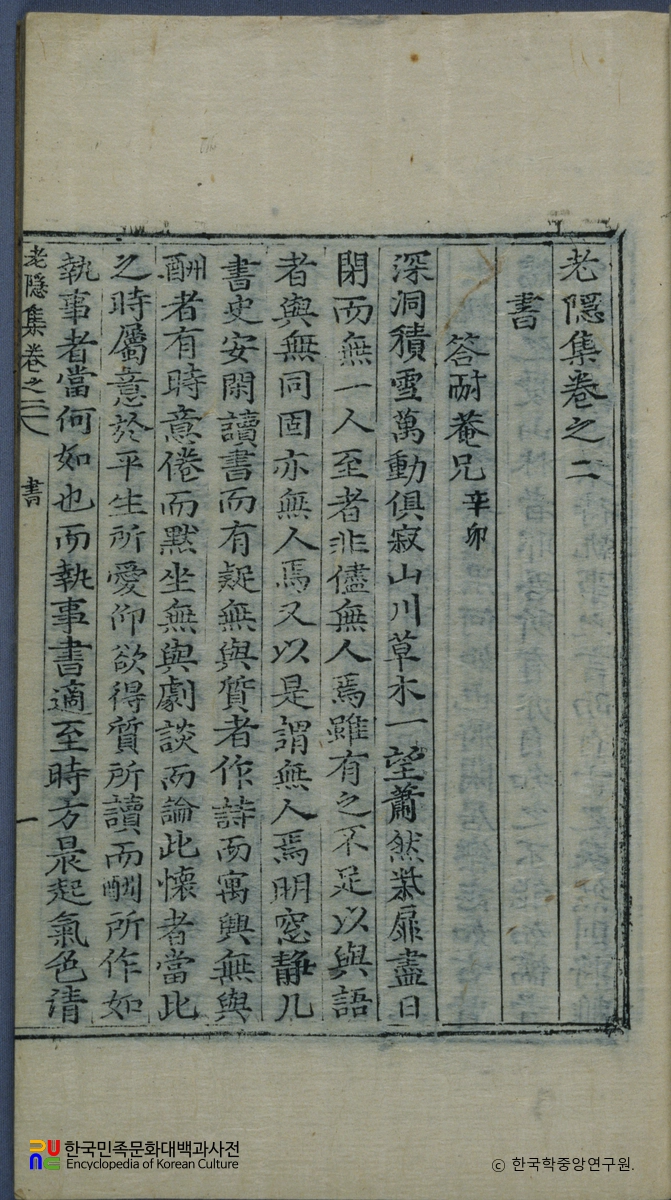 老隱集卷之二
書
答耐菴兄 辛卯
深洞積雪萬動俱寂山川草木一望蕭然柴扉盡日
閉而無一人至者非儘無人焉雖有之不足以與語
者與無同固亦無人焉又以是謂無人焉明窓静几
書史安閑讀書而有疑無與質者作詩而寓興無與
酬者有時意倦而默坐無與劇談而論此懷者當此
之時屬意於平生所愛仰欲得質所讀而酬所作如
執事者當何如也而執事書適至時方晨起氣色清
老隱集卷之二 書 一
한국민족문화대백과사전
Encyclopedia of Korean Culture
© 한국학중앙연구원.